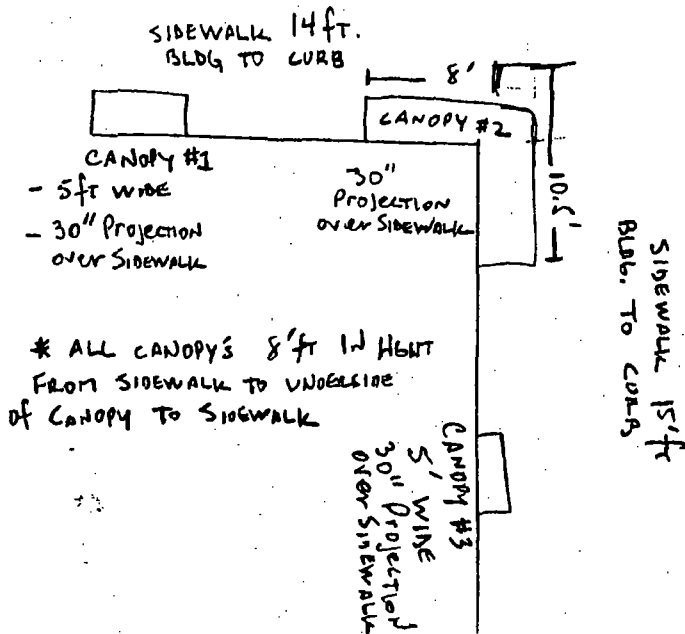 SIDEWALK 14 ft.
BLDG TO CURB
8'
CANOPY #2
CANOPY #1
- 5ft WIDE
- 30" Projection
over SIDEWALK
30"
Projection
over SIDEWALK
10.5'
SIDEWALK 15'ft
BLDG. TO CURB
* ALL CANOPY'S 8'ft IN HGHT
FROM SIDEWALK TO UNDERSIDE
of CANOPY TO SIDEWALK
CANOPY #3
5' WIDE
30" Projection
over SIDEWALK